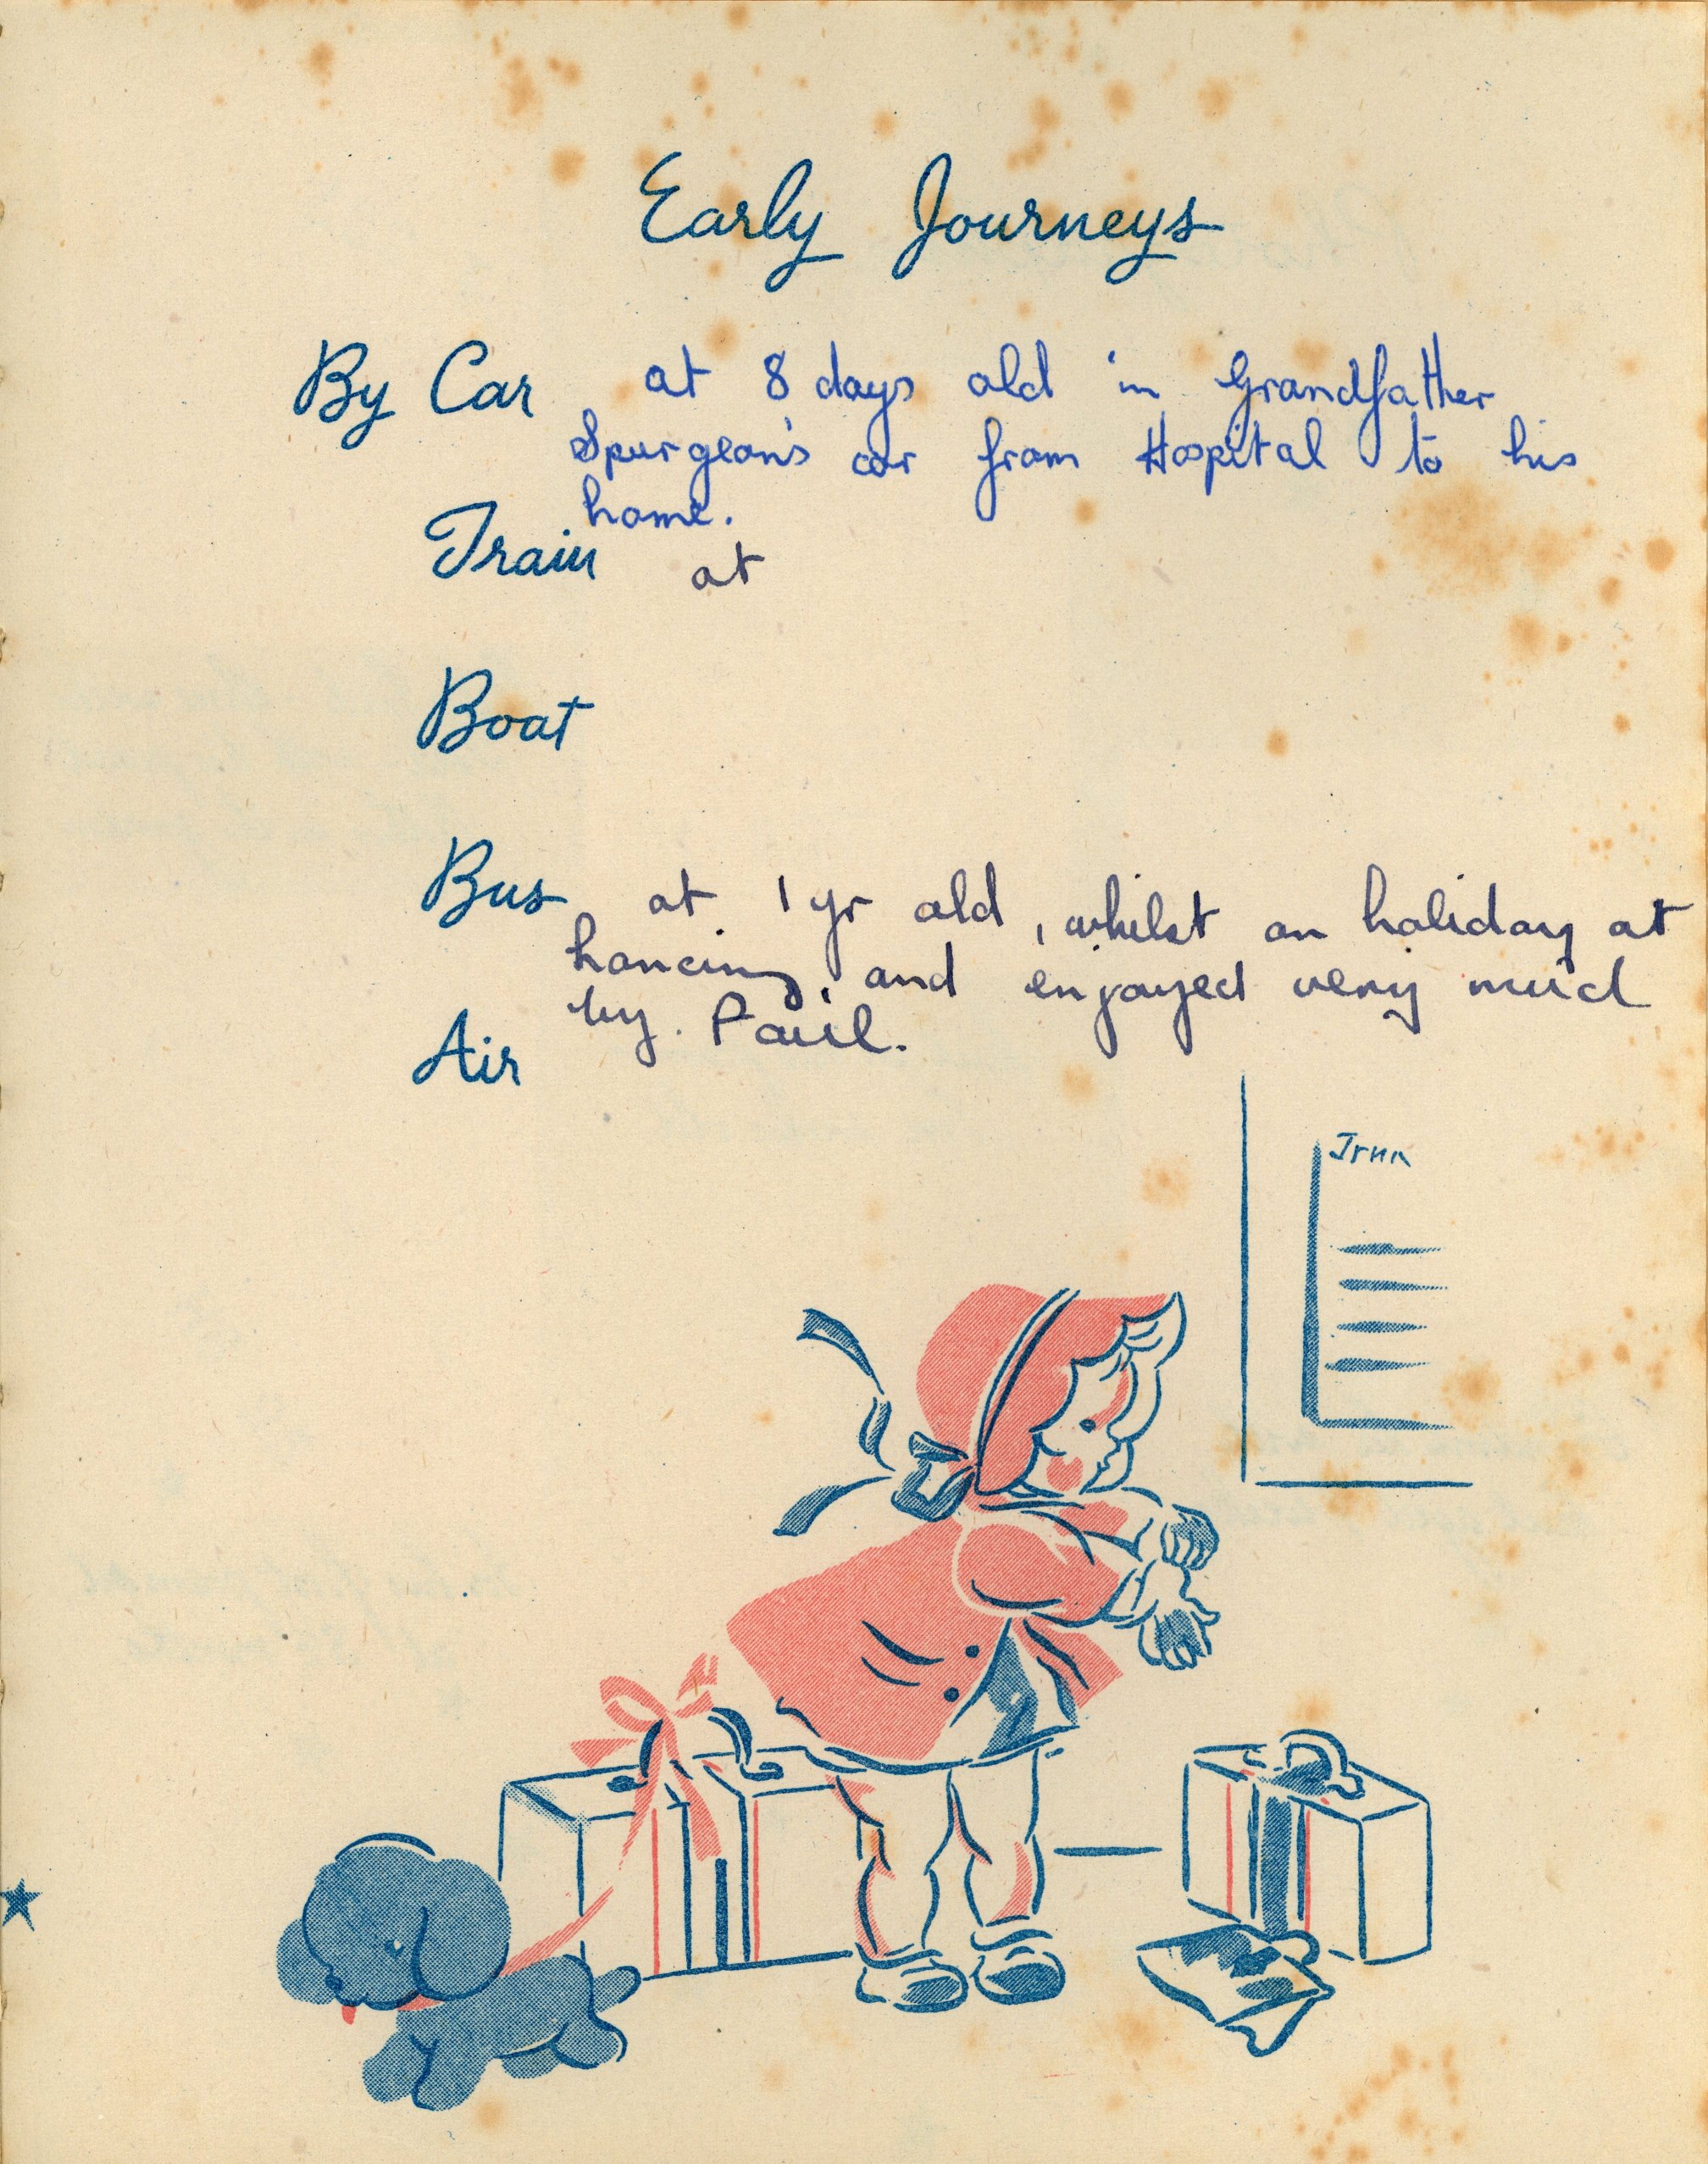 Early Journeys
By Car at 8 days old in Grandfather
Spurgeon's car from Hospital to his
home.
Train at
Boat
Bus at 1 yr old, whilst on holiday at
Lancing, and enjoyed very much
by. Paul.
Air